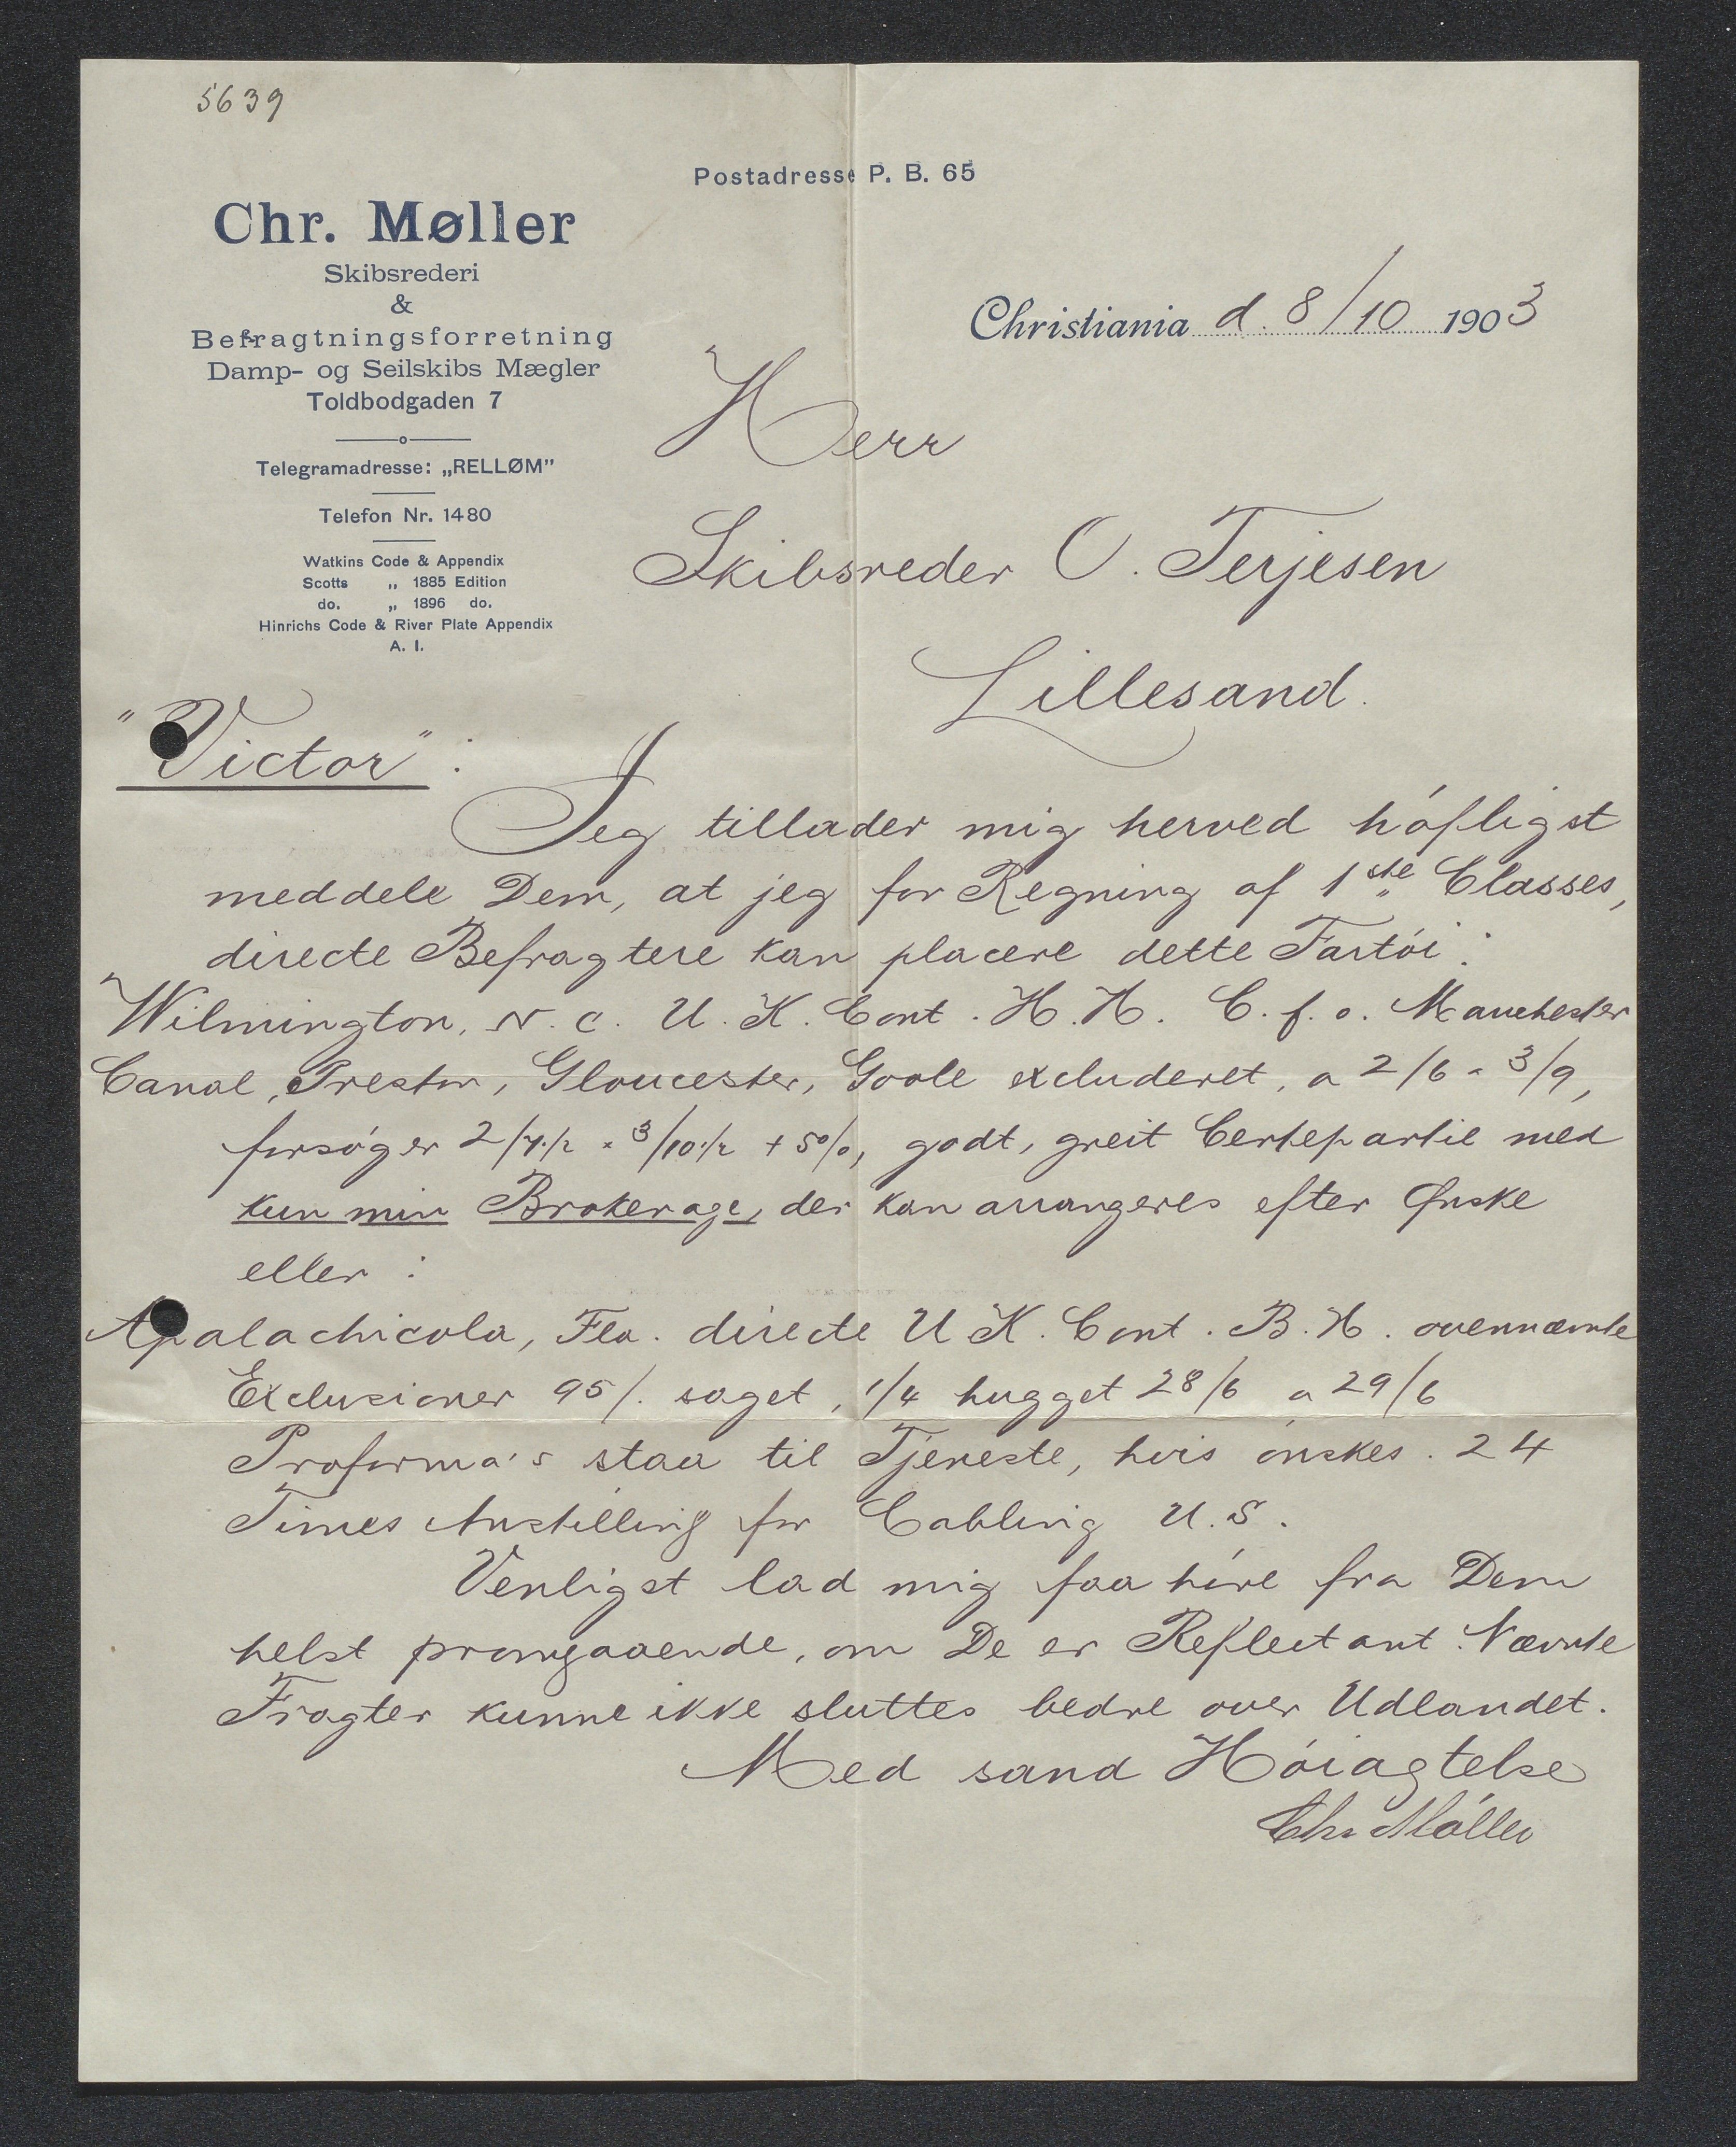 5639
Postadresse P. B. 65
Chr. Møller
Skibsrederi
&
Befragtningsforretning
Damp- og Seilskibs Mægler
Toldbodgaden 7
Telegramadresse: „RELLØM"
Telefon Nr. 1480
Watkins Code & Appendix
Scotts „ 1885 Edition
do. „ 1896 do.
Hinrichs Code & River Plate Appendix
A. I.
Christiania d. 8/10 1903
Herr
Skibsreder O. Terjesen
Lillesand.
"Victor":
Jeg tillader mig herved höfligst
meddele Dem, at jeg for Regning af 1ste Classes,
directe Befragtere kan placere dette Fartöi:
Wilmington, N. C. U. K. Cont. H. H. C. f. o. Manchester
Canal, Preston, Gloucester, Goole excluderet, a 2/6 - 3/9,
forsöger 2/7½ x 3/10½ + 5%, godt, greit Certepartie med
kun min Brokerage, der kan arrangeres efter Ønske
eller:
Apalachicola, Fla. directe U K. Cont. B. H. ovennævnte
Exclusioner 95/. saget, 1/4 hugget 28/6 a 29/6
Proforma's staa til Tjeneste, hvis önskes. 24
Times Anstilling for Cabling U. S.
Venligst lad mig faa höre fra Dem
helst promgaaende, om De er Reflectant. Nævnte
Fragter kunne ikke sluttes bedre over Udlandet.
Med sand Höiagtelse
Chr Möller